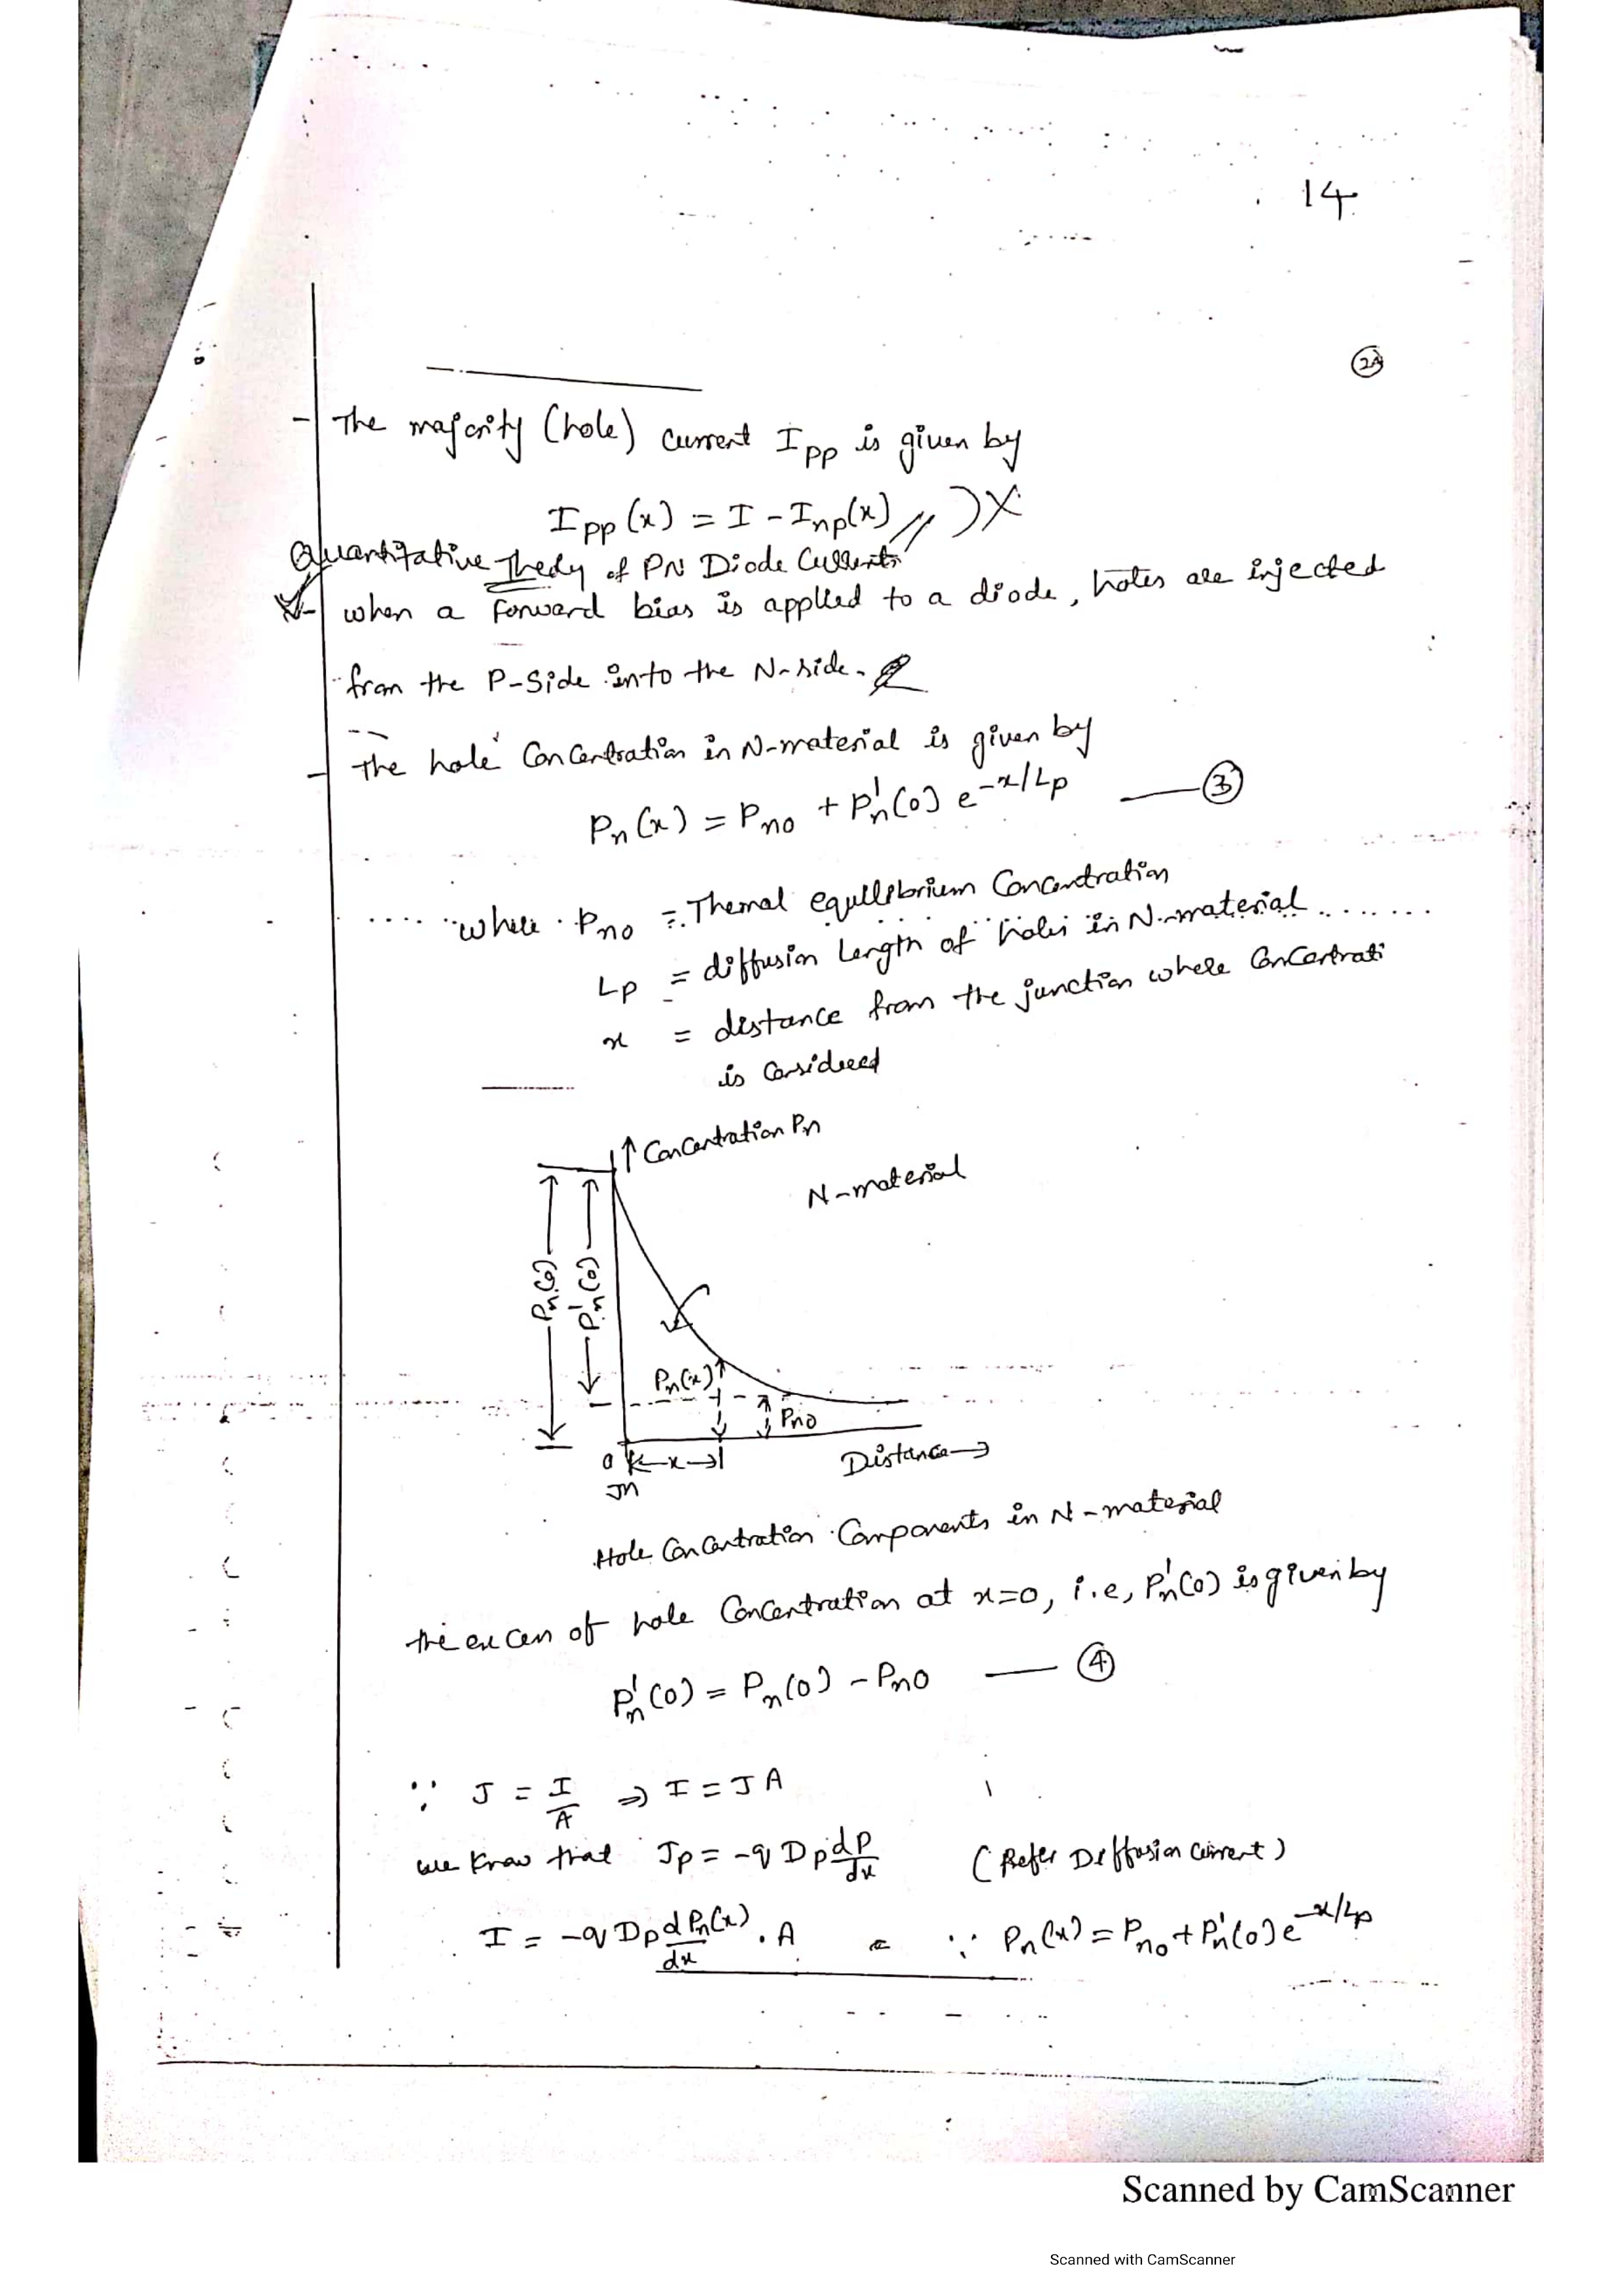 14
24
- The majority (hole) current Ipp is given by
Ipp(x) = I - Inp(x) // ) X
Quantitative Theory of PN Diode Currents
- when a forward bias is applied to a diode, holes are injected
from the P-Side into the N-side.
- The hole Concentration in N-material is given by
Pn(x) = Pno + P'n(0) e^-x/Lp — ③
where Pno = Themal equilibrium Concentration
Lp = diffusion Length of holes in N-material
x = distance from the junction where Concentrati
is Considered
↑ Concentration Pn
N-material
Pn(0)
P'n(0)
Pn(x)
Pno
0 ← x →
Jn
Distance →
Hole Concentration Components in N-material
the excess of hole Concentration at x=0, i.e, P'n(0) is given by
P'n(0) = Pn(0) - Pno — ④
∵ J = I/A ⇒ I = JA
we know that Jp = -q Dp dp/dx (Refer Diffusion Current)
I = -q Dp dPn(x)/dx . A ∵ Pn(x) = Pno + P'n(0) e^-x/Lp
Scanned by CamScanner
Scanned with CamScanner